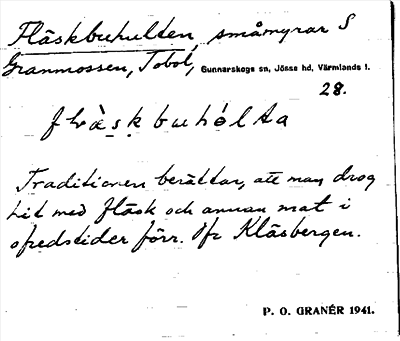 Fläskbuhulten, småmyrar S
Granmossen, Tobol, Gunnarskogs sn, Jösse hd, Värmlands l.
28.
flàskbuhólta
Traditionen berättar, att man drog
hit med fläsk och annan mat i
ofredstider förr. Jfr Klåsbergen.
P. O. GRANÉR 1941.